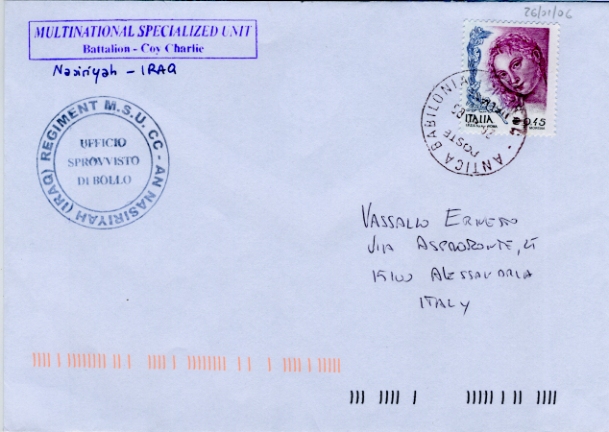 26/01/06
MULTINATIONAL SPECIALIZED UNIT
Battalion - Coy Charlie
Nasiriyah - IRAQ
REGIMENT M.S.U. CC - AN NASIRIYAH (IRAQ)
UFFICIO
SPROVVISTO
DI BOLLO
ITALIA
€ 0,45
ANTICA BABILONIA
POSTE
VASSALLO ERNESTO
VIA ASPROMONTE, 21
15100 ALESSANDRIA
ITALY